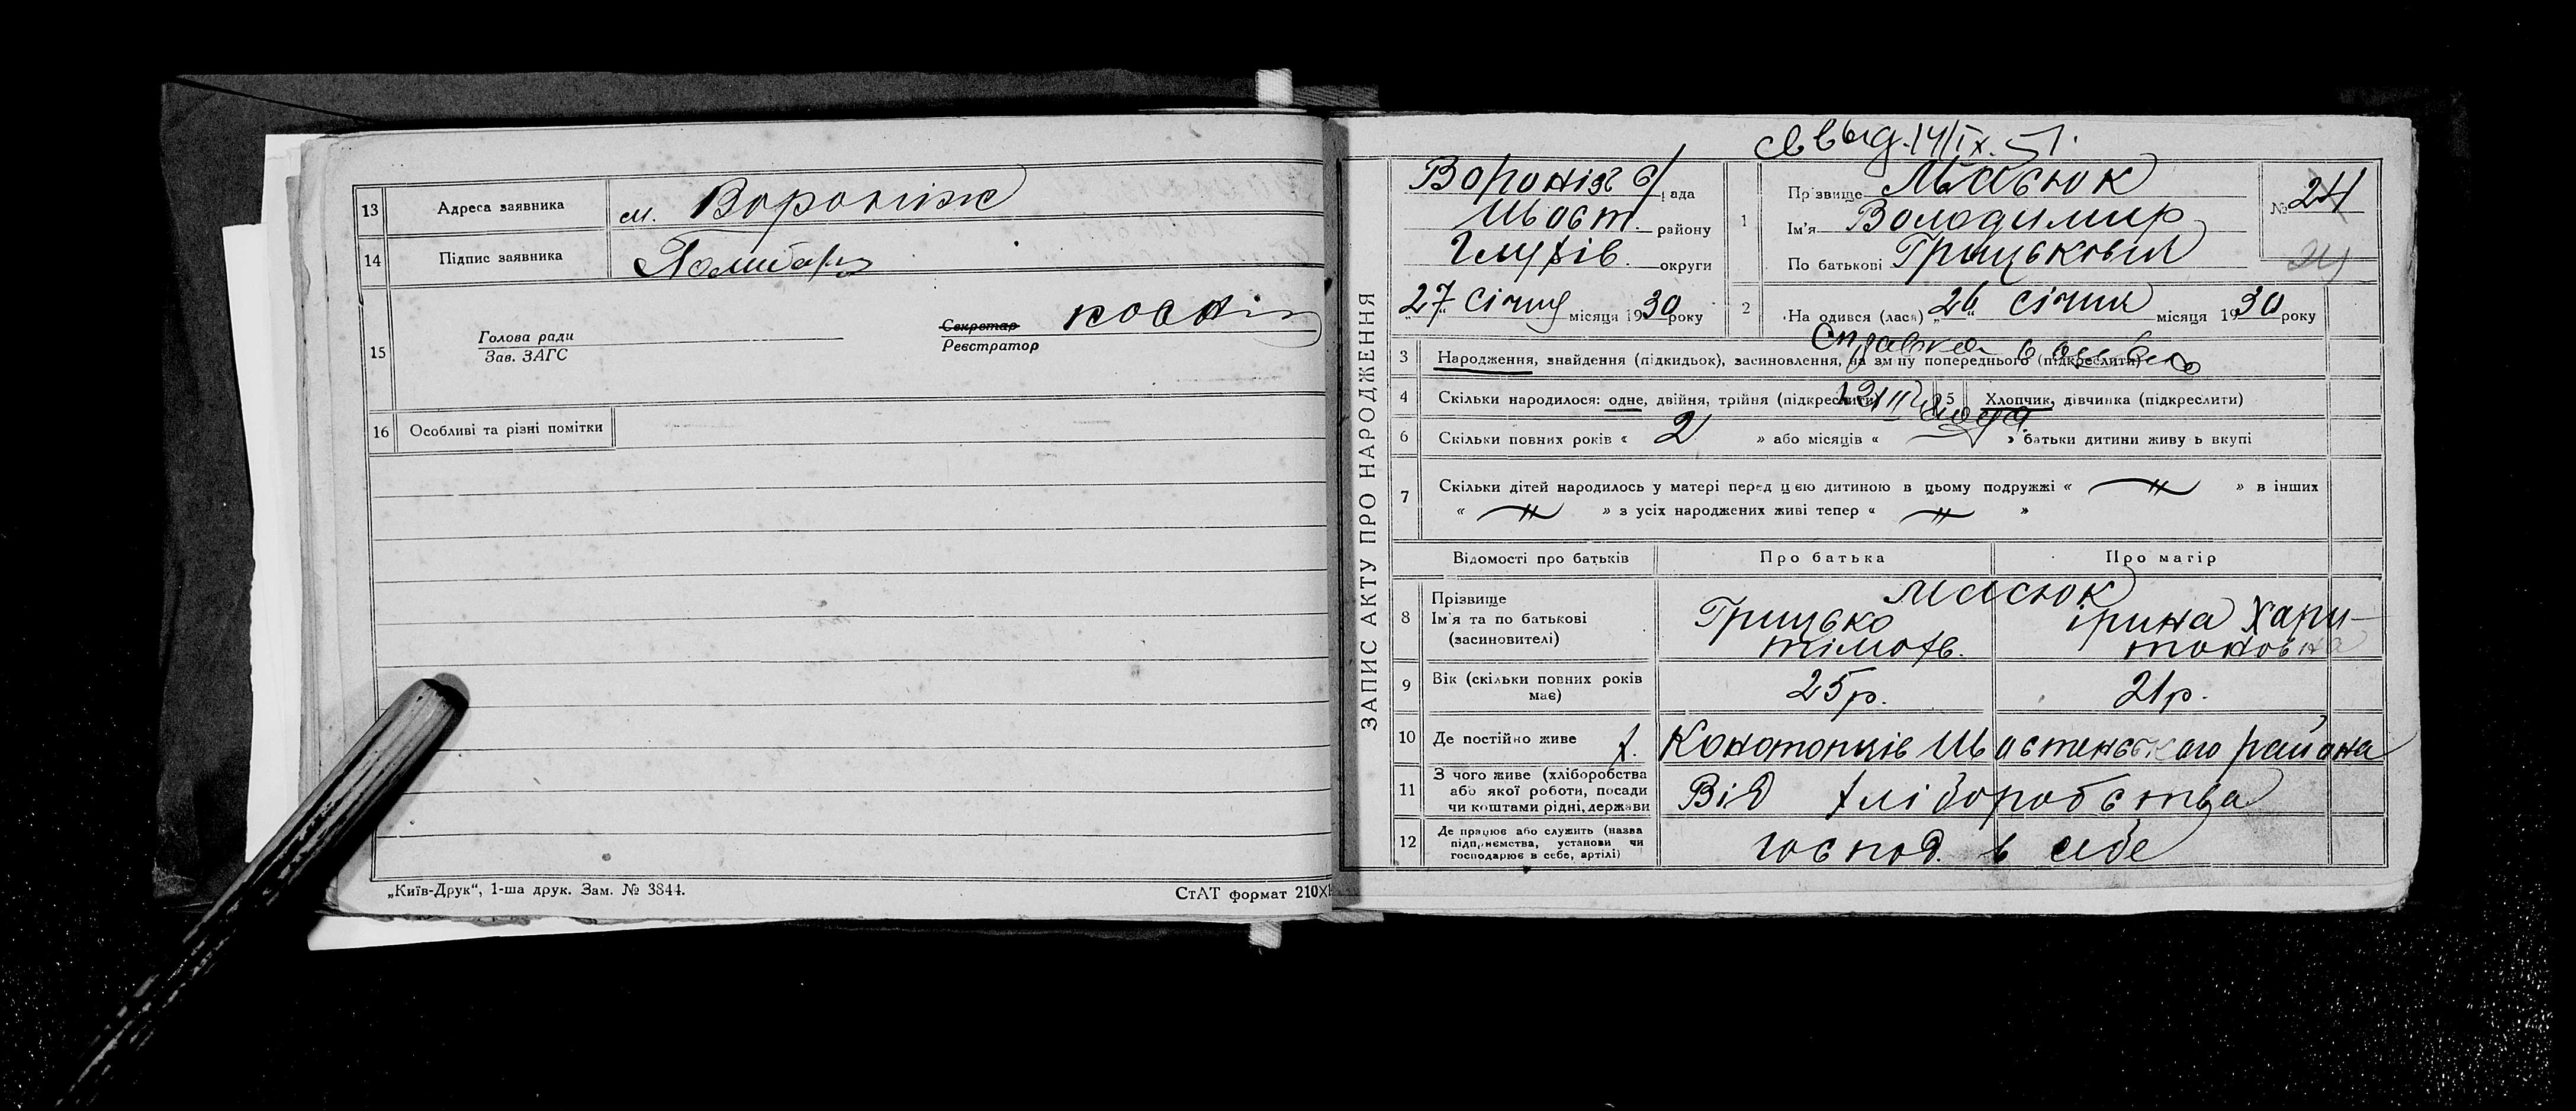 13 Адреса заявника см. Вороніж
14 Підпис заявника
15 Голова ради
Зав. ЗАГС
Секретар
Реєстратор
16 Особливі та різні помітки
„Київ-Друк“, 1-ша друк. Зам. № 3844.
СтАТ формат 210X
ЗАПИС АКТУ ПРО НАРОДЖЕННЯ
св выд. 14/IX. 51.
Вороніж с/рада
Шост. району
Глухів. округи
„27“ січня місяця 1930 року
1 Прізвище Масюк
Ім'я Володимир
По батькові Грицькович
№ 24
24
2 Народився (лася) „26“ січня місяця 1930 року
Справка
3 Народження, знайдення (підкидьок), засиновлення, на зміну попереднього (підкреслити)
4 Скільки народилося: одне, двійня, трійня (підкреслити)
5 Хлопчик, дівчинка (підкреслити)
6 Скільки повних років « 2 » або місяців « » батьки дитини живуть вкупі
7 Скільки дітей народилось у матері перед цією дитиною в цьому подружжі « –//– » в інших
« –//– » з усіх народжених живі тепер « –//– »
Відомості про батьків Про батька Про матір
8 Прізвище
Ім'я та по батькові
(засиновителі)
Масюк
Грицько
тімохв.
ірина Хари-
тоновна
9 Вік (скільки повних років має) 25 р. 21 р.
10 Де постійно живе х. Конотопців Шостенського района
11 З чого живе (хліборобства
або якої роботи, посади
чи коштами рідні, держави
Від хліборобства
12 Де працює або служить (назва
підприємства, установи чи
господарює в себе, артілі)
господ. в себе